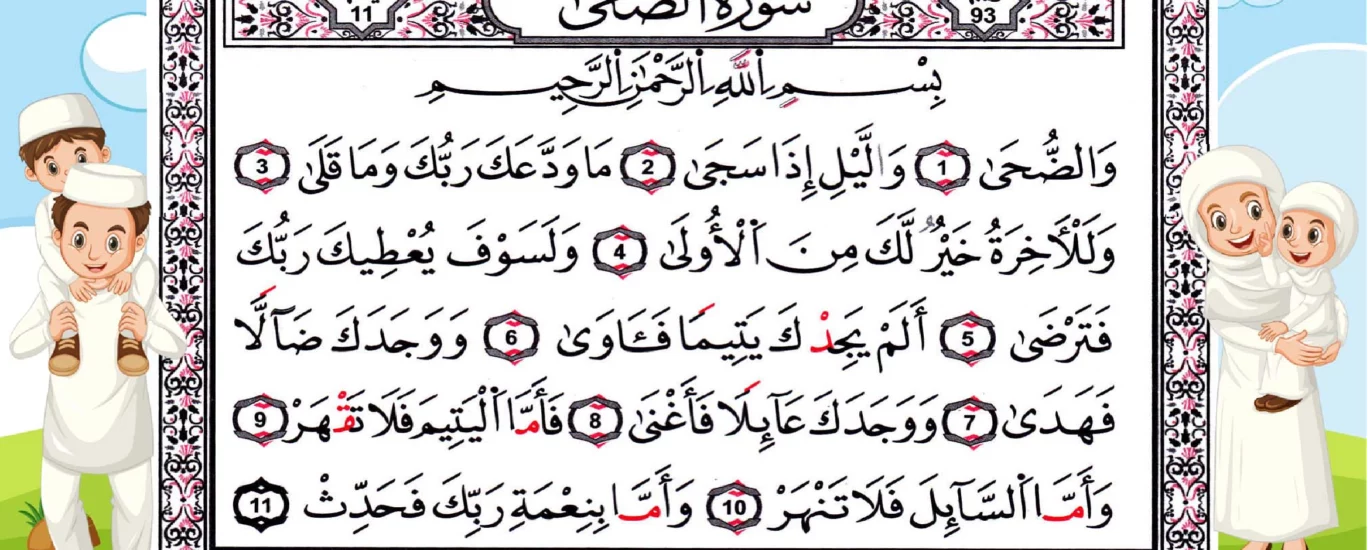 93 سُورَةُ الضُّحَىٰ 11
بِسْمِ اللَّهِ الرَّحْمَٰنِ الرَّحِيمِ
وَالضُّحَىٰ 1 وَالَّيْلِ إِذَا سَجَىٰ 2 مَا وَدَّعَكَ رَبُّكَ وَمَا قَلَىٰ 3
وَلَلْأَخِرَةُ خَيْرٌ لَّكَ مِنَ الْأُولَىٰ 4 وَلَسَوْفَ يُعْطِيكَ رَبُّكَ
فَتَرْضَىٰ 5 أَلَمْ يَجِدْكَ يَتِيمًا فَـَٔاوَىٰ 6 وَوَجَدَكَ ضَآلًّا
فَهَدَىٰ 7 وَوَجَدَكَ عَآئِلًا فَأَغْنَىٰ 8 فَأَمَّا الْيَتِيمَ فَلَا تَقْهَرْ 9
وَأَمَّا السَّآئِلَ فَلَا تَنْهَرْ 10 وَأَمَّا بِنِعْمَةِ رَبِّكَ فَحَدِّثْ 11